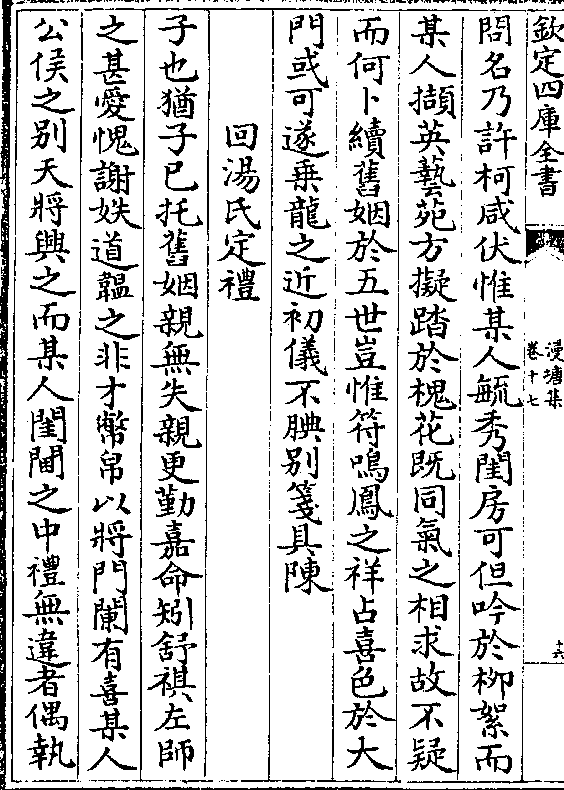 欽定四庫全書
漫塘集
卷十七
十六
問名乃許柯咸伏惟某人毓秀閨房可但吟於柳絮而
某人擷英藝苑方擬踏於槐花既同氣之相求故不疑
而何卜續舊姻於五世豈惟符鳴鳳之祥占喜色於大
門或可遂乗龍之近初儀不腆别箋具陳
回湯氏定禮
子也猶子已托舊姻親無失親更勤嘉命矧舒祺左師
之甚愛愧謝妷道韞之非才幣帛以將門闌有喜某人
公侯之别天將興之而某人閨閫之中禮無違者偶執